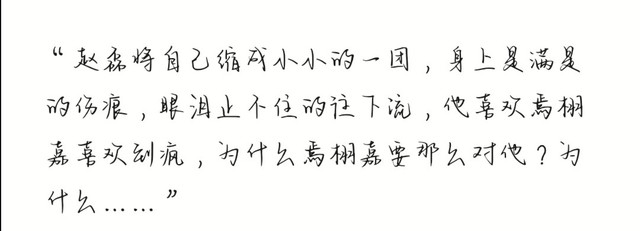 “赵磊将自己缩成小小的一团，身上是满是
的伤痕，眼泪止不住的往下流，他喜欢焉栩
嘉喜欢到疯，为什么焉栩嘉要那么对他？为
什么……”